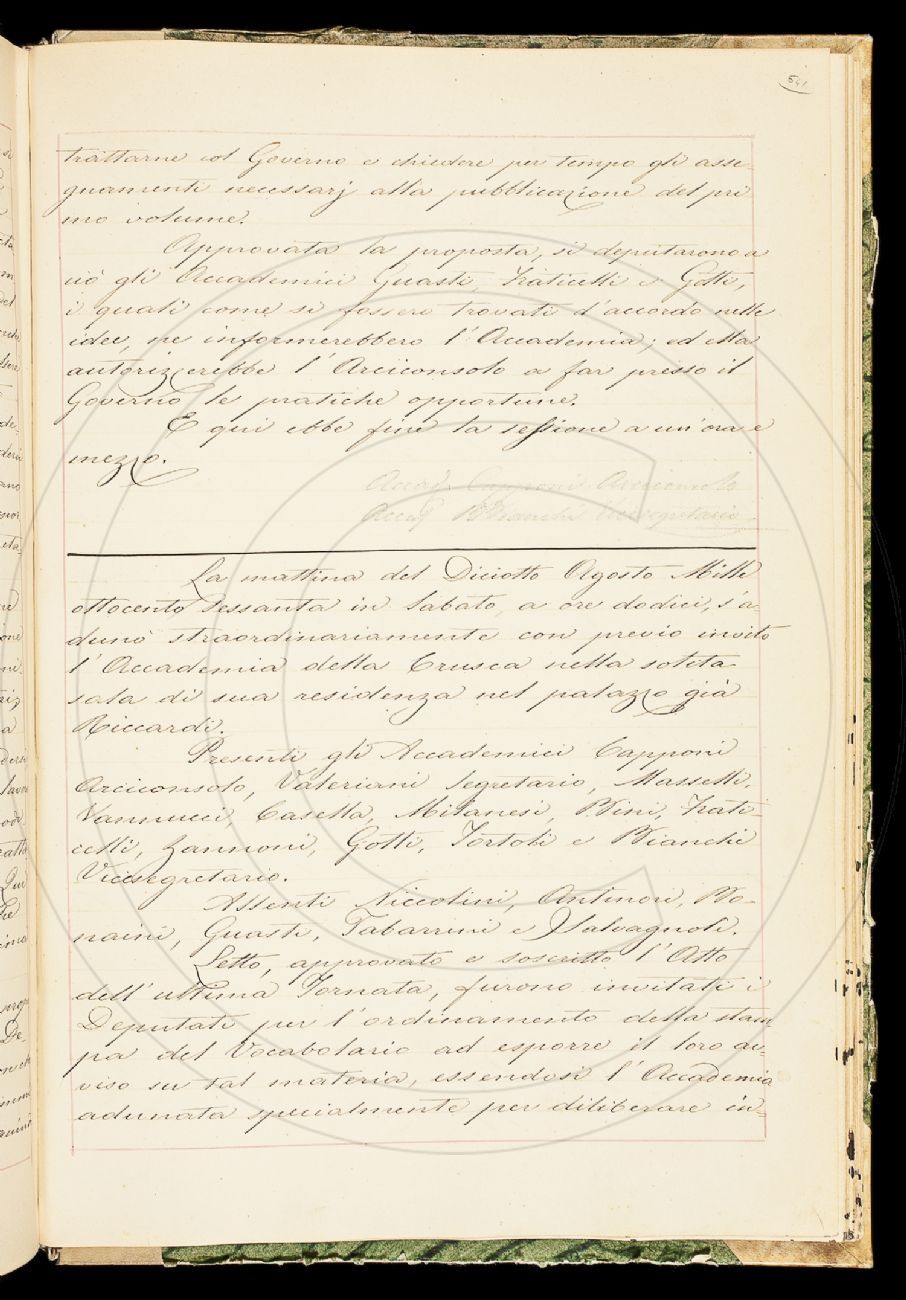 541
trattarne col Governo e chiedere per tempo gli asse-
gnamenti necessarj alla pubblicazione del pri
mo volume.
Approvata la proposta, si deputarono a
ciò gli Accademici Guasti, Fraticelli e Gotti,
i quali come si fossero trovati d'accordo nelle
idee, ne informerebbero l'Accademia; ed ella
autorizzerebbe l'Arciconsolo a far presso il
Governo le pratiche opportune.
E qui ebbe fine la sessione a un'ora e
mezzo.
Accad. Capponi Arciconsolo
Accad. B. Bianchi Vicesegretario
La mattina del Diciotto Agosto Mille
ottocento sessanta in Sabato, a ore dodici, s'a-
dunò straordinariamente con previo invito
l'Accademia della Crusca nella solita
sala di sua residenza nel palazzo già
Riccardi.
Presenti gli Accademici Capponi
Arciconsolo, Valeriani Segretario, Masselli,
Vannucci, Casella, Milanesi, Bini, Frati-
celli, Zannoni, Gotti, Tortoli e Bianchi
Vicesegretario.
Assenti Niccolini, Antinori, Bo-
naini, Guasti, Tabarrini e Salvagnoli.
Letto, approvato e soscritto l'Atto
dell'ultima Tornata, furono invitati i
Deputati per l'ordinamento della stam-
pa del Vocabolario ad esporre il loro av-
viso su tal materia, essendosi l'Accademia
adunata specialmente per diliberare in-